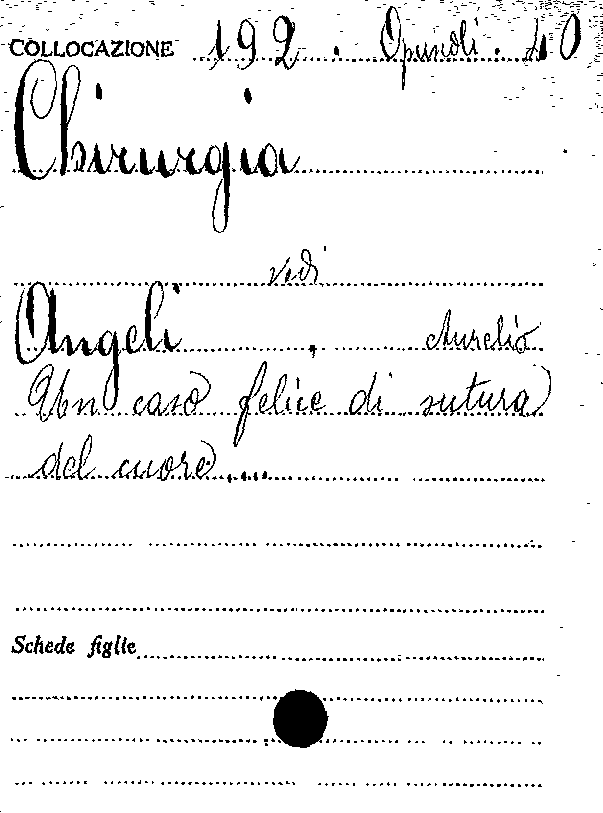 COLLOCAZIONE 192. Opuscoli. 40
Chirurgia
vedi
Angeli, Aurelio
Un caso felice di sutura
del cuore....
Schede figlie